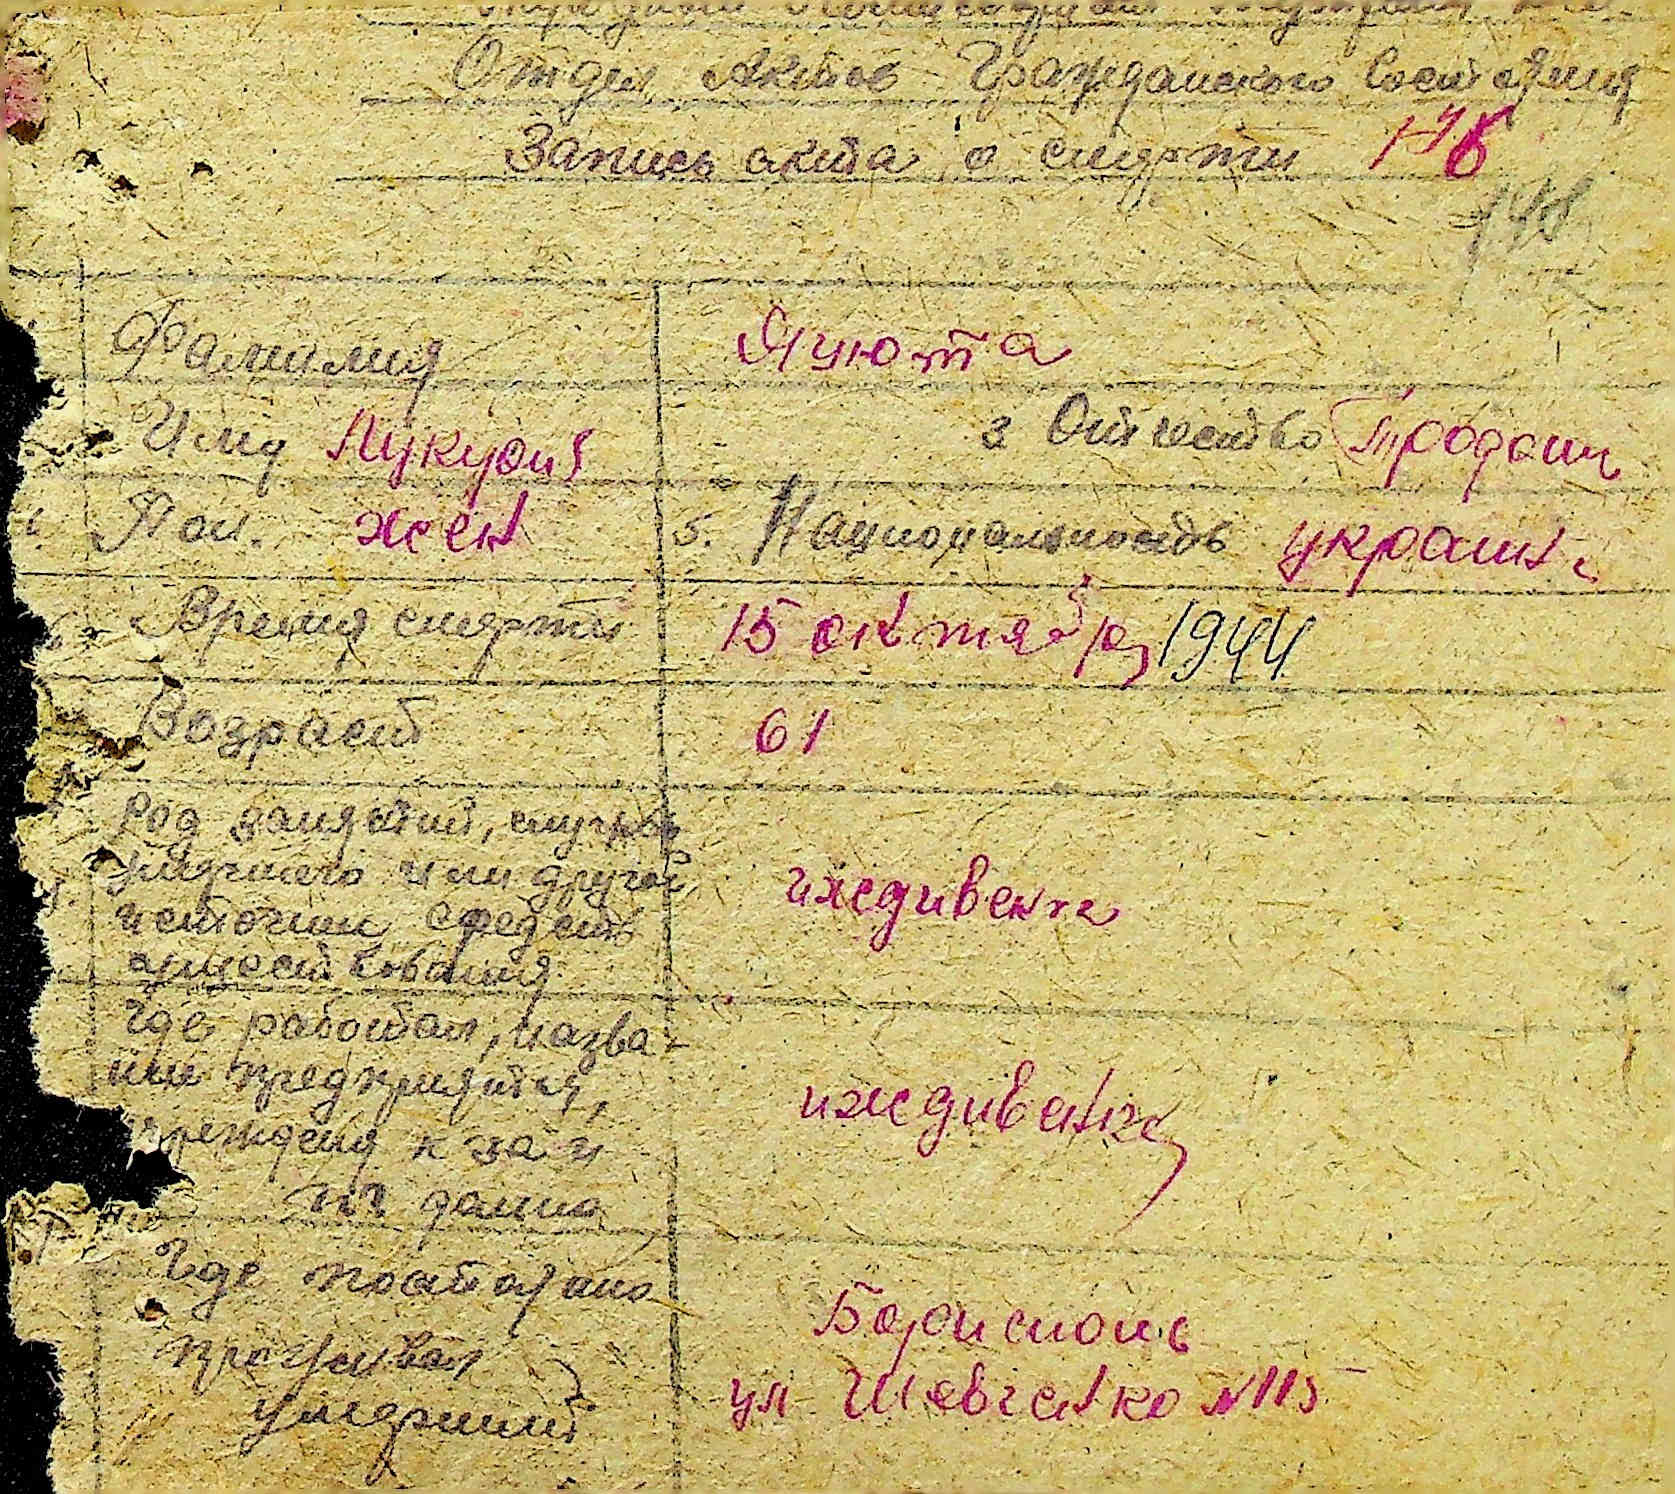 Отдел Актов Гражданского Состояния
Запись акта о смерти
Фамилия Яцюта
Имя 3 Отчество
Пол. жен 5. Национальность украинка
Время смерти 15 октября 1944
Возраст 61
Род занятий,
умершего или другой
источник средств
иждивенка
Где работал, назва-
ние предприятия,
иждивенка
Где постояно
проживал
умерший
Борисполь
ул Шевченко №115